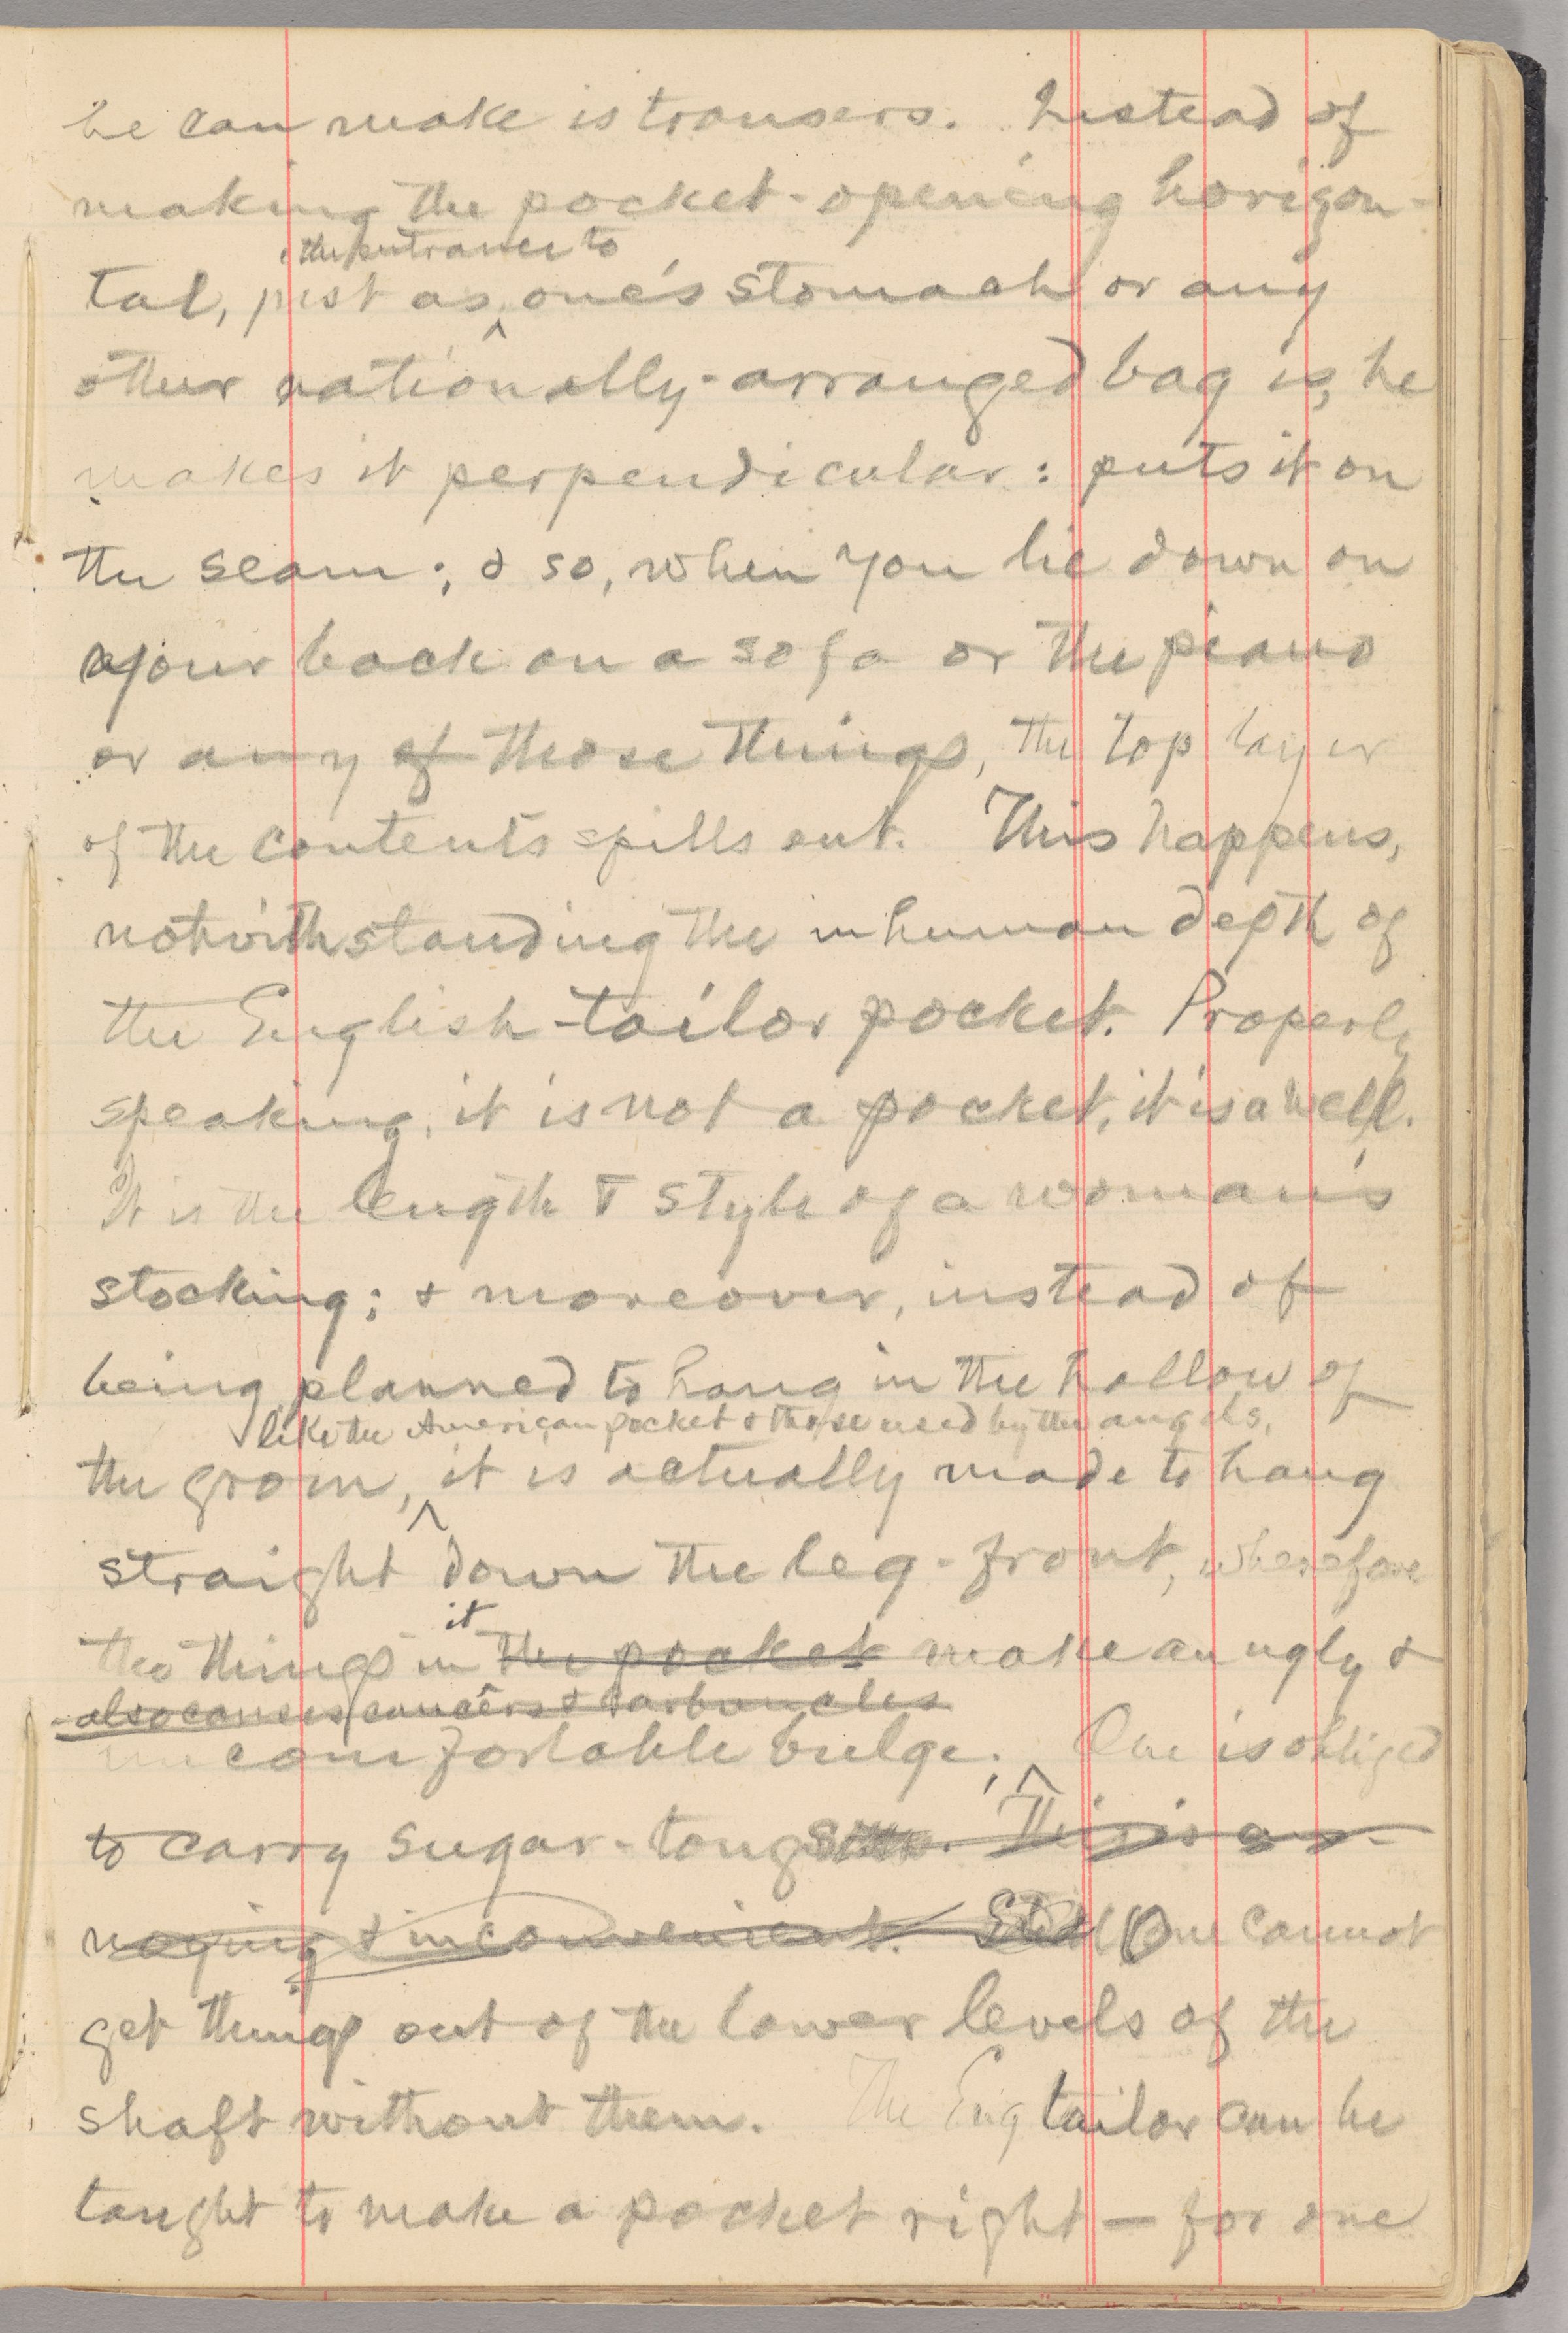 he can make is trousers. Instead of
making the pocket-opening horizon-
the entrance to
tal, just as one's stomach or any
other rationally-arranged bag is, he
makes it perpendicular: puts it on
the seam; & so, when you lie down on
your back on a sofa or the piano
or any of those things, the top layer
of the contents spills out. This happens,
notwithstanding the inhuman depth of
the English-tailor pocket. Properly
speaking, it is not a pocket, it is a well.
It is the length & style of a woman's
stocking; & moreover, instead of
being planned to hang in the hollow of
like the American pocket & those used by the angels,
the groin, it is actually made to hang
straight down the leg-front, wherefore
it
the things in the pocket make an ugly &
also causes cancers & carbuncles
uncomfortable bulge; One is obliged
to carry sugar-tongs. This is an-
noying & inconvenient. Still One cannot
get things out of the lower levels of the
shaft without them. The Eng tailor can be
taught to make a pocket right — for one